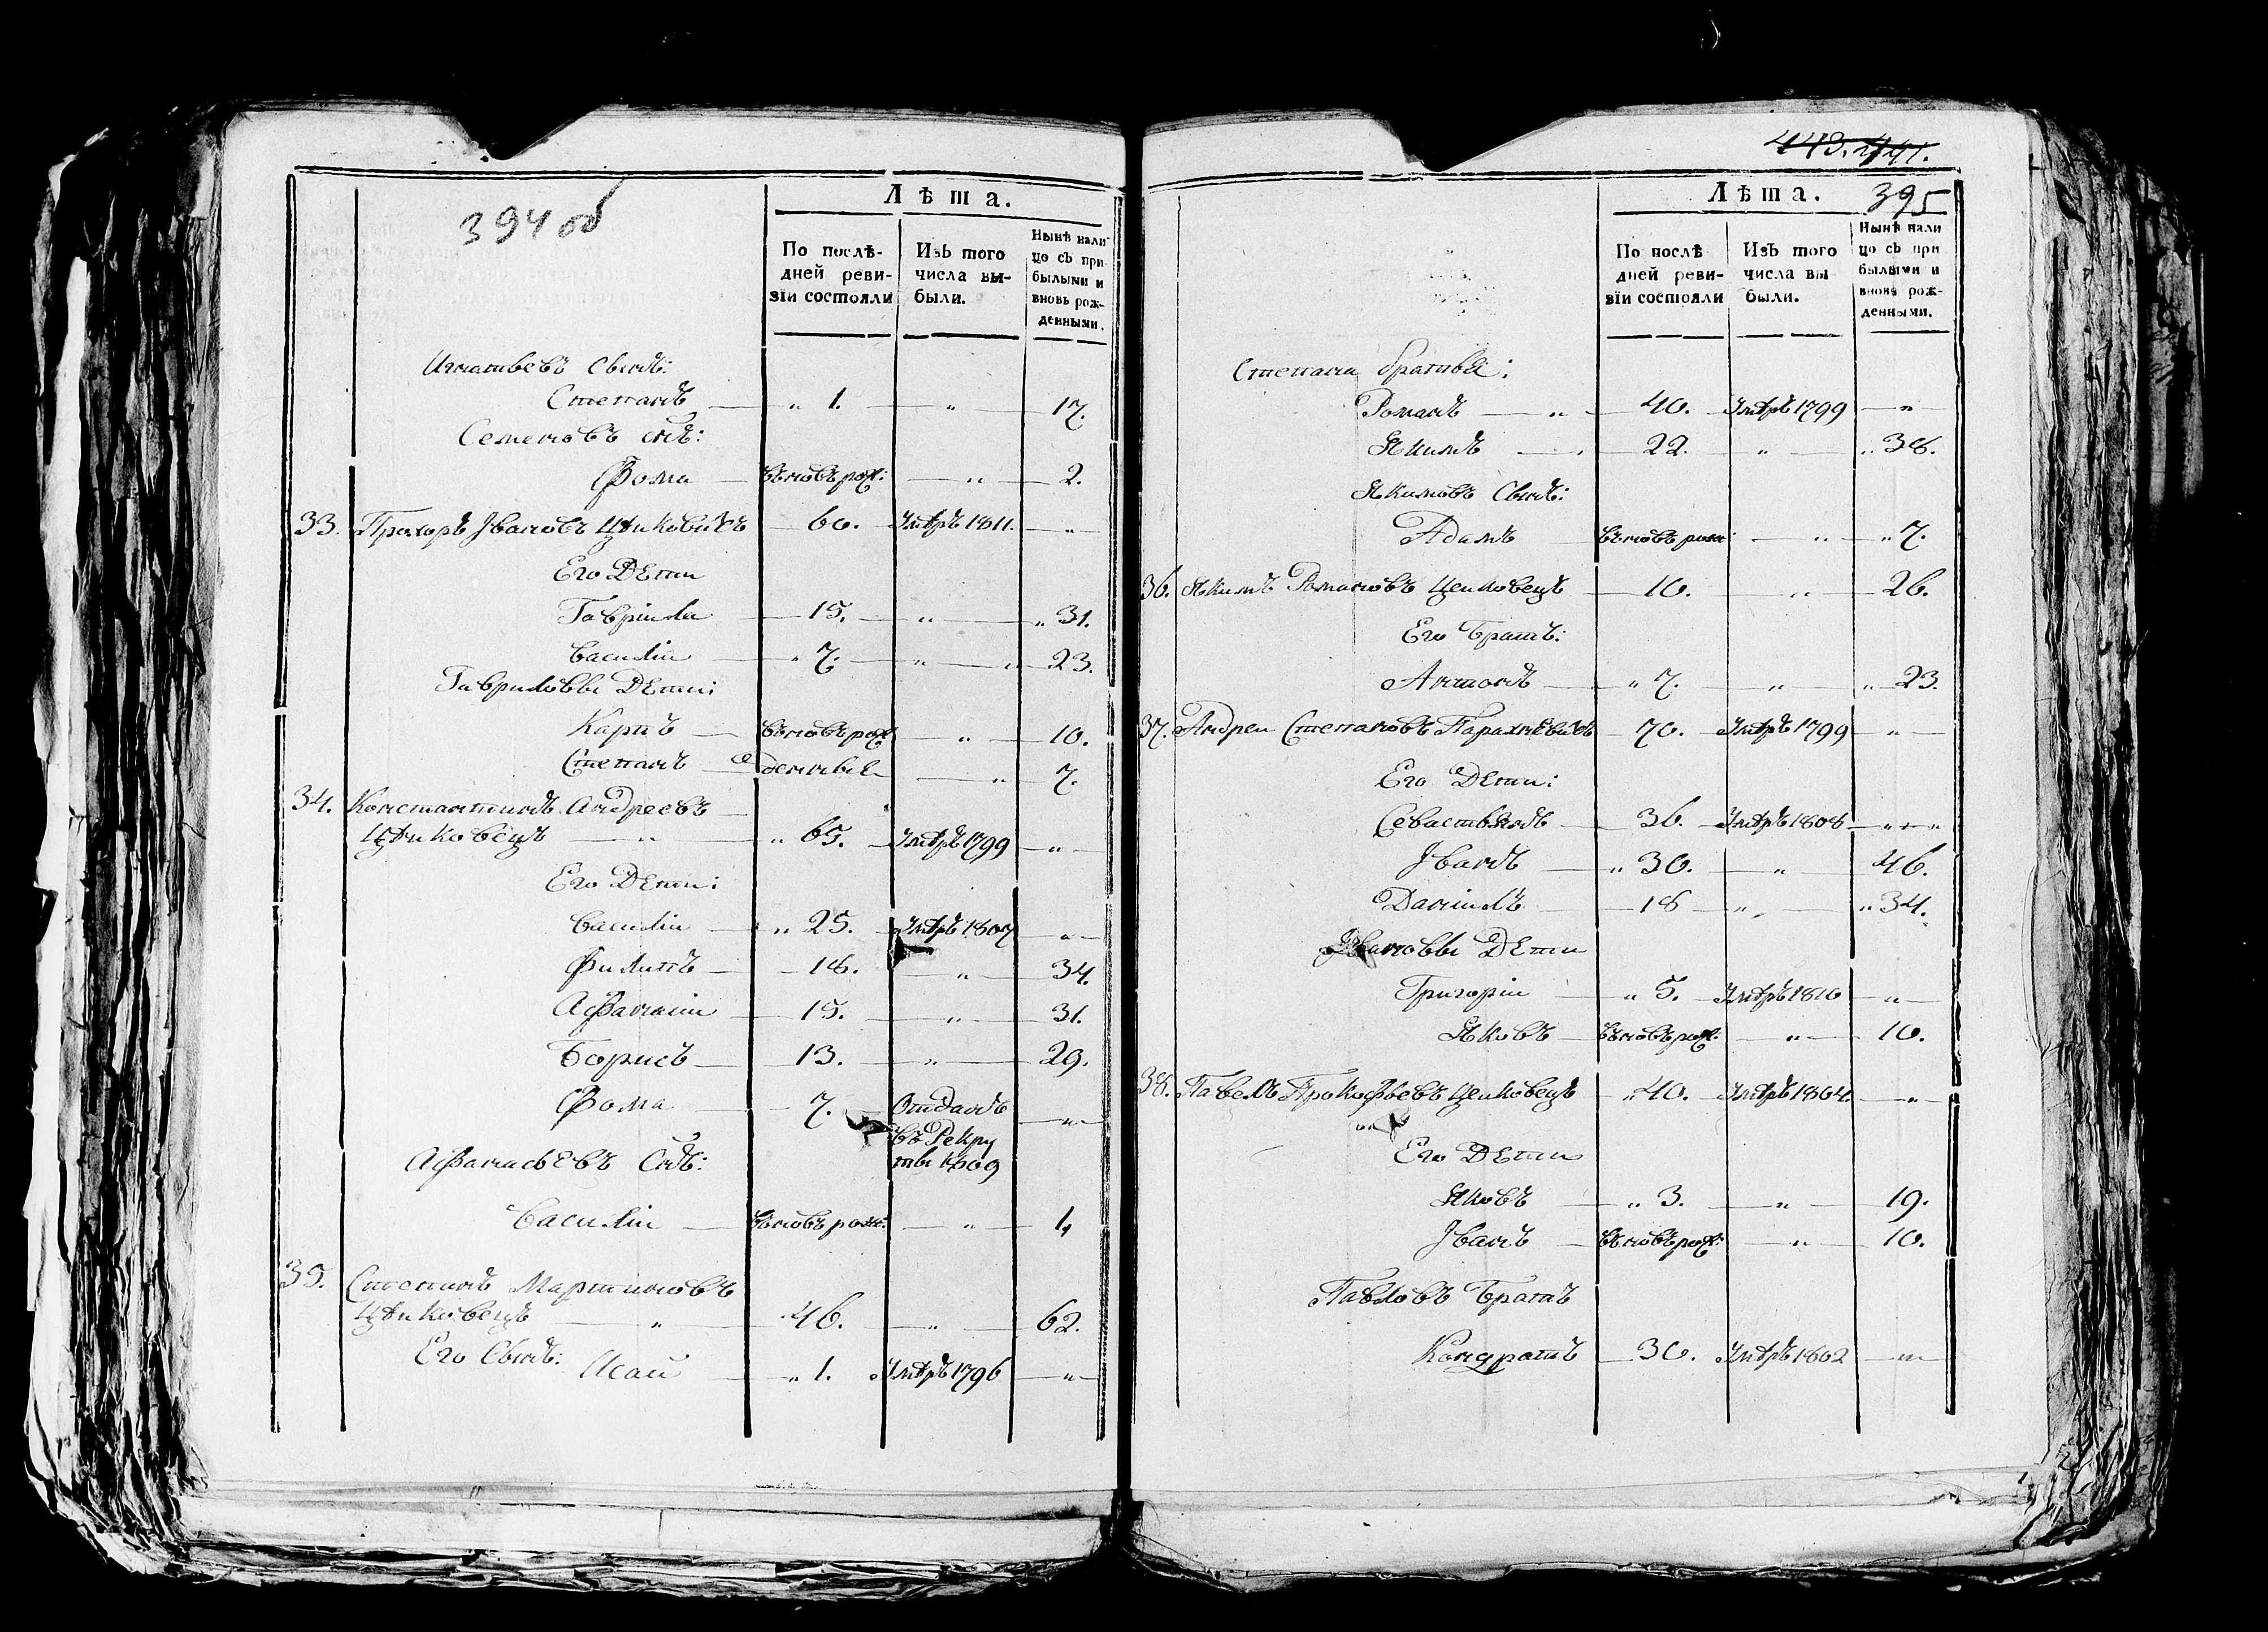 394 об
Лѣта.
По послѣ-
дней реви-
зіи состояли
Изъ того
числа вы-
были.
Нынѣ нали
цо съ при
былыми и
вновь рож-
денными.
Игнатьевъ сынъ:
Степанъ — „ 1. — „ — 17.
Семеновъ снъ:
Фома — вьновъ рож: — „ — 2.
33. Прохоръ Ивановъ Цѣиковичъ — 60. — Умѣръ 1811. — „
Его Дети
Гаврила — 15. — „ — „ 31.
Василіи — „ 7. — „ — „ 23.
Гавриловы Дети:
Карпъ — вьновъ рож — „ — 10.
Степанъ — — „ — 7.
34. Константинъ Андреевъ
Цѣиковецъ — „ — „ 65. — Умѣръ 1799 — „
Его Дети:
Василіи — „ 25. — Умѣръ 1807 — „
Филипъ — 18. — „ — 34.
Афанаіи — 15. — „ — 31.
Борисъ — 13. — „ — 29.
Фома — 7. — Отданъ — „
въ Рекру
ты
Афанасьевъ Снъ:
Василіи — вьновъ рож: — „ — 4
35. Степанъ Мартиновъ
Цѣиковецъ — „ — 46. — „ — 62.
Его Сынъ: Исай — „ 1. — Умѣръ 1796 — „
395
Лѣта.
По послѣ
дней реви-
зіи состояли
Изъ того
числа вы
были.
Нынѣ нали
цо съ при
былыми и
вновь рож-
денными.
Степана братья:
Романъ — „ — 40. — Умѣръ 1799 — „
Якимъ — 22. — „ — „ 38.
Якимовъ Сынъ:
Адамъ — вьновъ рож — „ — „ 7.
36. Якимъ Романовъ Цеиковецъ — 10. — „ — 26.
Его Братъ:
Антонъ — „ 7. — „ — „ 23.
37. Андреи Степановъ Парахневичъ — 70. — Умѣръ 1799 — „
Его Дети:
Севастьянъ — 36. — Умѣръ 1808 — „
Іванъ — „ 30. — „ — 46.
Данилъ — 18 — „ — „ 34.
Ивановы Дети
Григоріи — „ 5. — Умѣръ 1810 — „
Яковъ — вьновъ рож: — „ — 10.
38. Павелъ Прокофьевъ Цеиковецъ — „ 40. — Умѣръ 1804. — „
Его Дети
Яковъ — „ 3. — „ — 19.
Іванъ — вьновъ рож: — „ — 10.
Павловъ Братъ
Кондратъ — 30. — Умѣръ 1802 — „